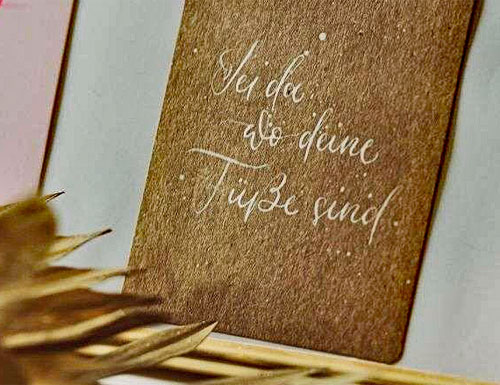 Sei da
wo deine
Füße sind.